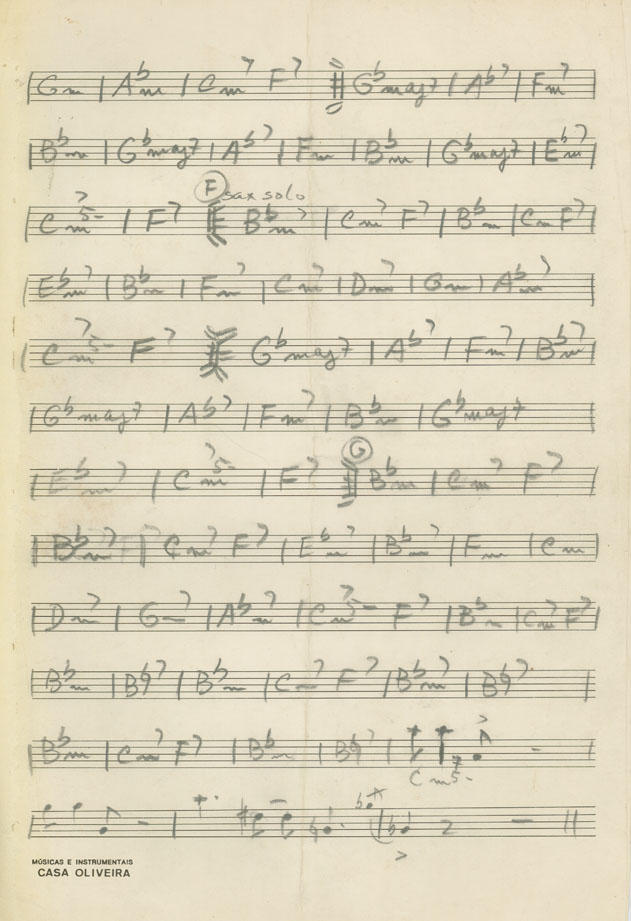 Gm | A♭m | Cm7 F7 G♭maj7 | A♭7 | Fm7
B♭m | G♭maj7 | A♭7 | Fm | B♭m | G♭maj7 | E♭m7
F sax solo
Cm7 5- | F7 B♭m7 | Cm7 F7 | B♭m | Cm F7
E♭m7 | B♭m | Fm7 | Cm7 | Dm7 | Gm | A♭m7
Cm7 5- F7 G♭maj7 | A♭7 | Fm7 | B♭m7
G♭maj7 | A♭7 | Fm7 | B♭m | G♭maj7
G
E♭m7 | Cm7 5- | F7 B♭m | Cm7 F7
B♭m7 | Cm7 F7 | E♭m7 | B♭m | Fm7 | Cm
Dm7 | G-7 | A♭m7 | Cm7 5- F7 | B♭m | Cm7 F7
B♭m | B♭7 | B♭m | C-7 F7 | B♭m7 | B♭7
B♭m | Cm7 F7 | B♭m | B♭7
Cm5-
MÚSICAS E INSTRUMENTAIS
CASA OLIVEIRA